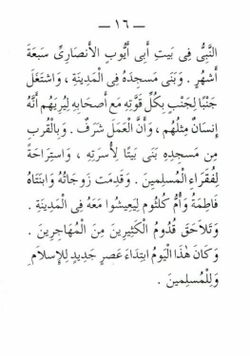 — ١٦ —
النَّبِىُّ فِى بَيتِ أَبِى أَيُّوبِ الأَنصَارِىِّ سَبعَةَ
أَشهُرٍ . وَبَنَى مَسجِدَهُ فِى المَدِينَةِ ، وَاشتَغَلَ
جَنْبًا لِجَنْبٍ بِكُلِّ قُوَّتِهِ مَعَ أَصحَابِهِ لِيُرِيَهُم أَنَّهُ
إِنسَانٌ مِثلُهُم ، وَأَنَّ العَمَلَ شَرَفٌ . وَبِالقُربِ
مِن مَسجِدِهِ بَنَى بَيتًا لِأُسرَتِهِ ، وَاستِرَاحَةً
لِفُقَرَاءِ المُسلِمِينَ . وَقَدِمَت زَوجَاتُهُ وَابنَتَاهُ
فَاطِمَةُ وَأُمُّ كُلثُومٍ لِيَعِيشُوا مَعَهُ فِى المَدِينَةِ .
وَتَلَاحَقَ قُدُومُ الكَثِيرِينَ مِنَ المُهَاجِرِينَ .
وَكَانَ هٰذَا اليَومُ ابتِدَاءَ عَصرٍ جَدِيدٍ لِلإِسلَامِ
وَلِلمُسلِمِينَ .